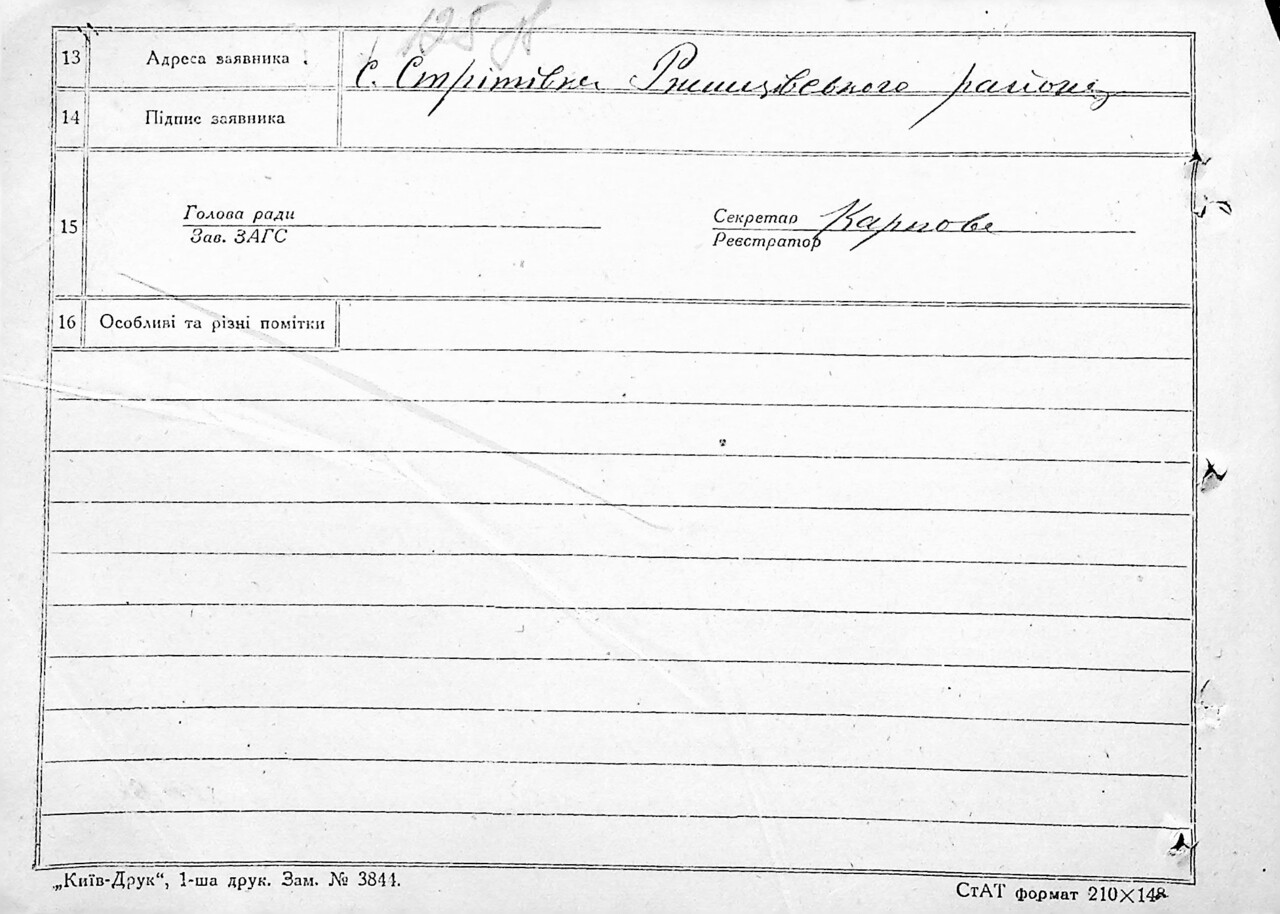 13 Адреса заявника с. Стрітівка Ржищівського района
14 Підпис заявника
15 Голова ради
Зав. ЗАГС
Секретар
Реєстратор
16 Особливі та різні помітки
„Київ-Друк“, 1-ша друк. Зам. № 3844.
СтАТ формат 210×148